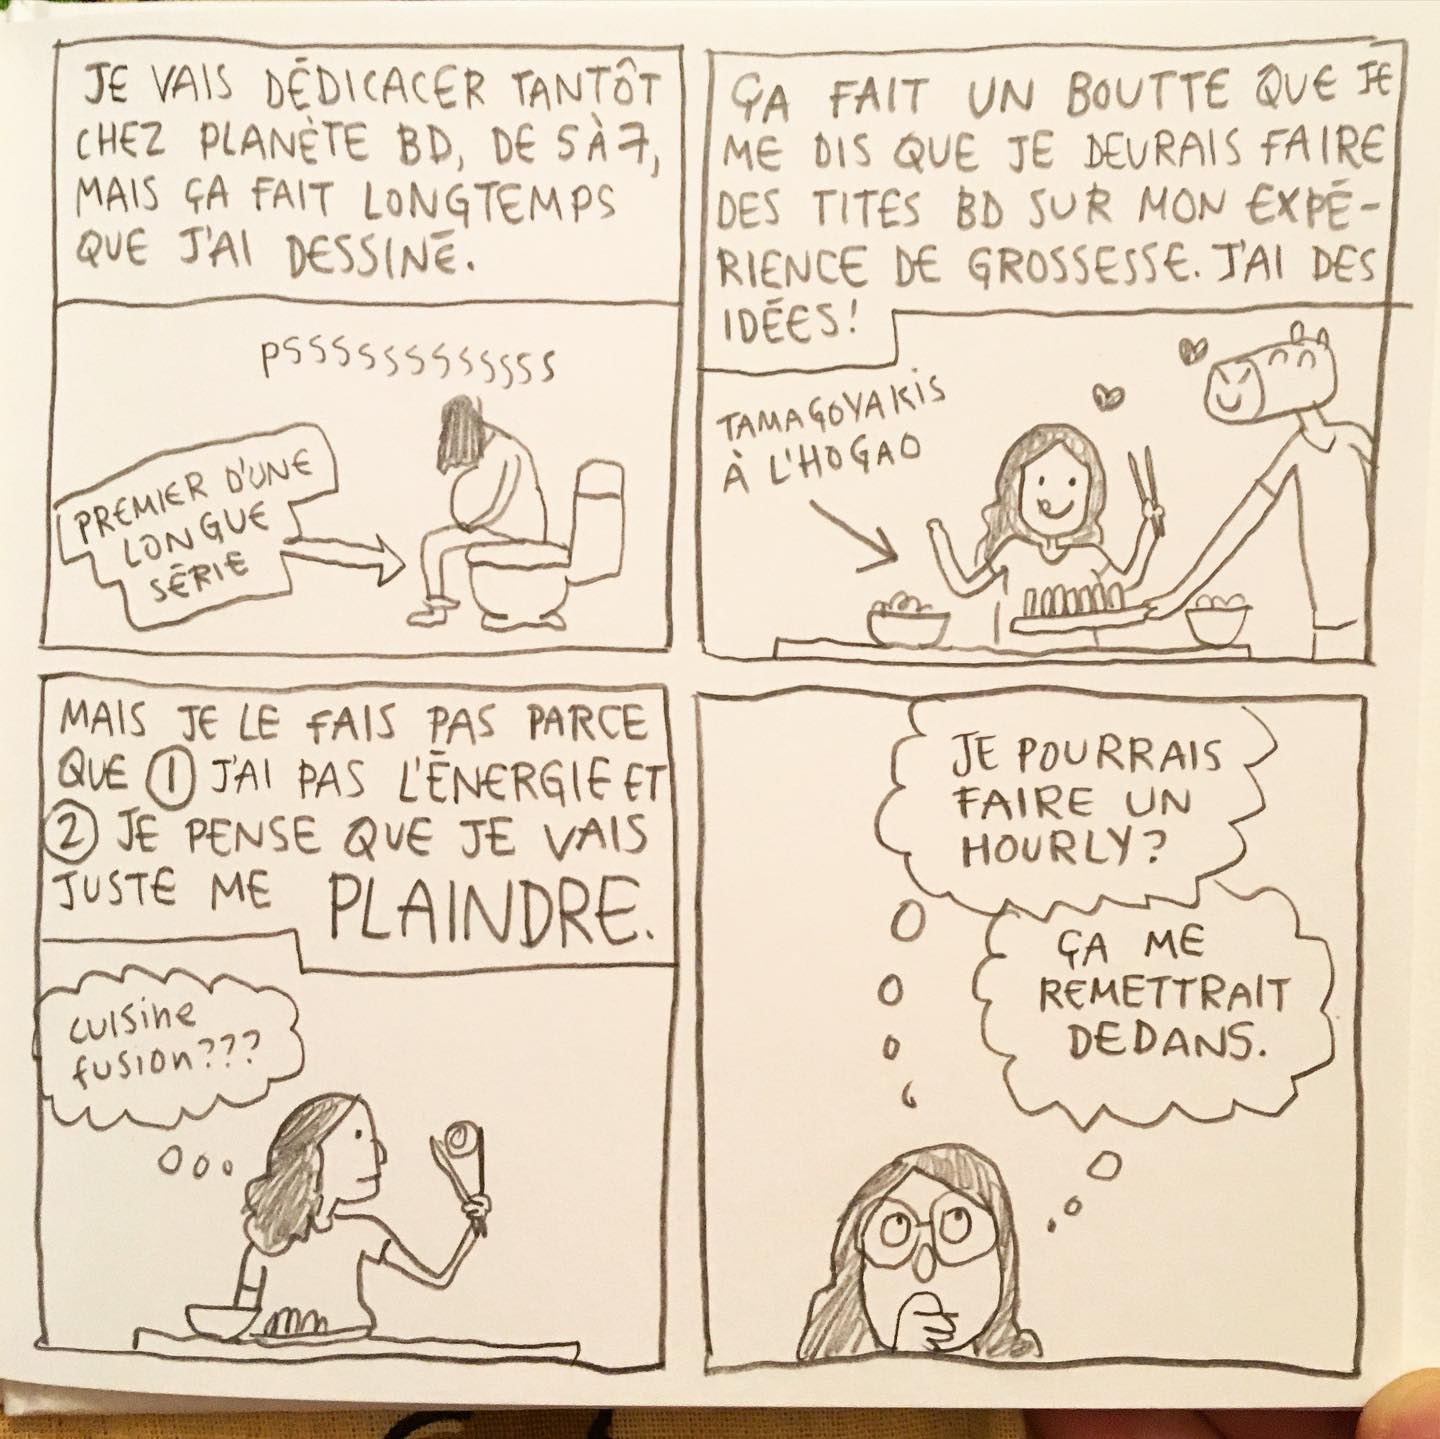 JE VAIS DÉDICACER TANTÔT
CHEZ PLANÈTE BD, DE 5 À 7,
MAIS ÇA FAIT LONGTEMPS
QUE J'AI DESSINÉ.
PSSSSSSSSSSSSS
PREMIER D'UNE
LONGUE
SÉRIE
ÇA FAIT UN BOUTTE QUE JE
ME DIS QUE JE DEVRAIS FAIRE
DES TITES BD SUR MON EXPÉ-
RIENCE DE GROSSESSE. J'AI DES
IDÉES!
TAMAGOYAKIS
À L'HOGAO
MAIS JE LE FAIS PAS PARCE
QUE ① J'AI PAS L'ÉNERGIE ET
② JE PENSE QUE JE VAIS
JUSTE ME PLAINDRE.
cuisine
fusion???
JE POURRAIS
FAIRE UN
HOURLY?
ÇA ME
REMETTRAIT
DEDANS.